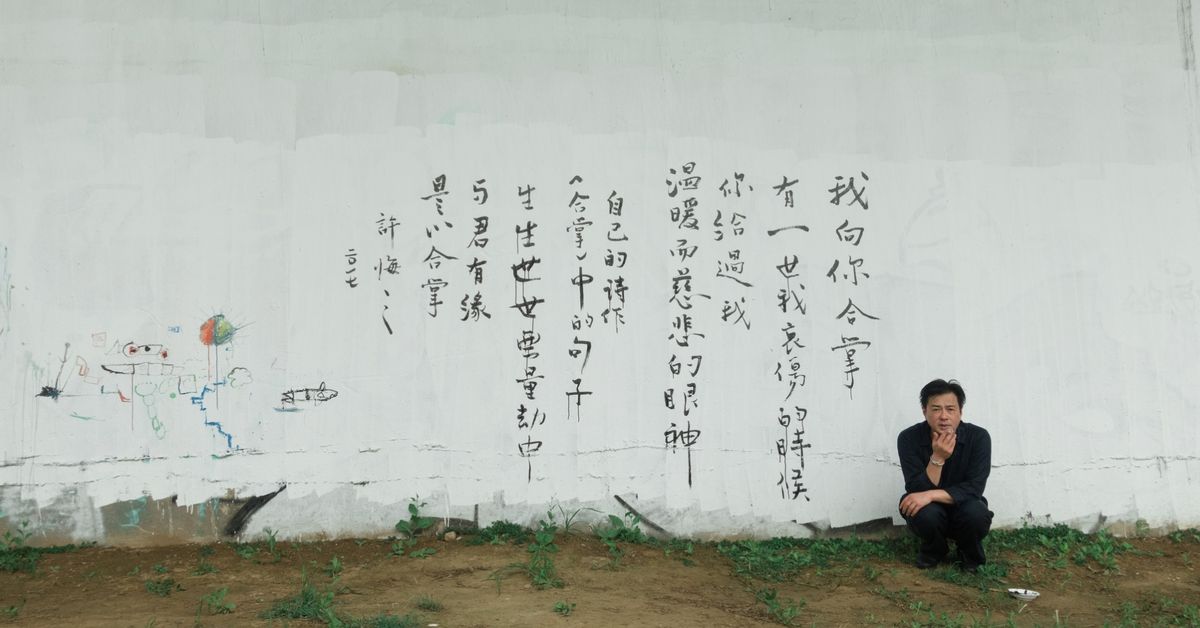 我向你合掌
有一世我哀傷的時候
你給過我
溫暖而慈悲的眼神
自己的詩作
〈合掌〉中的句子
生生世世無量劫中
与君有緣
是以合掌
許悔之
二〇一七